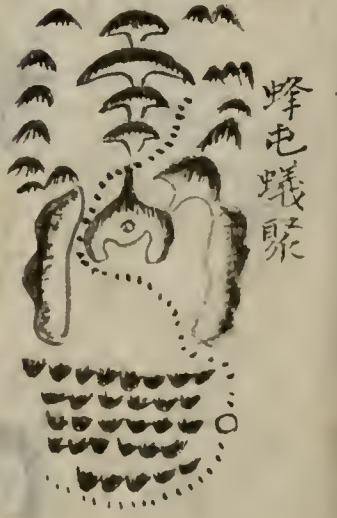 蜂屯蟻聚